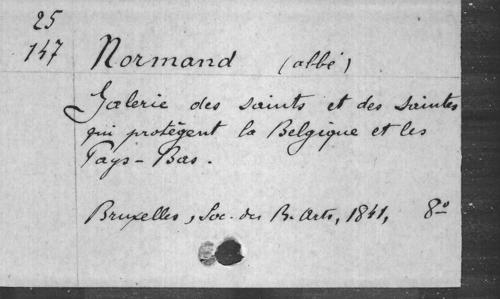 25
147 Normand (abbé)
Galerie des saints et des saintes
qui protègent la Belgique et les
Pays-Bas.
Bruxelles, Soc. des B. Arts, 1841, 8º